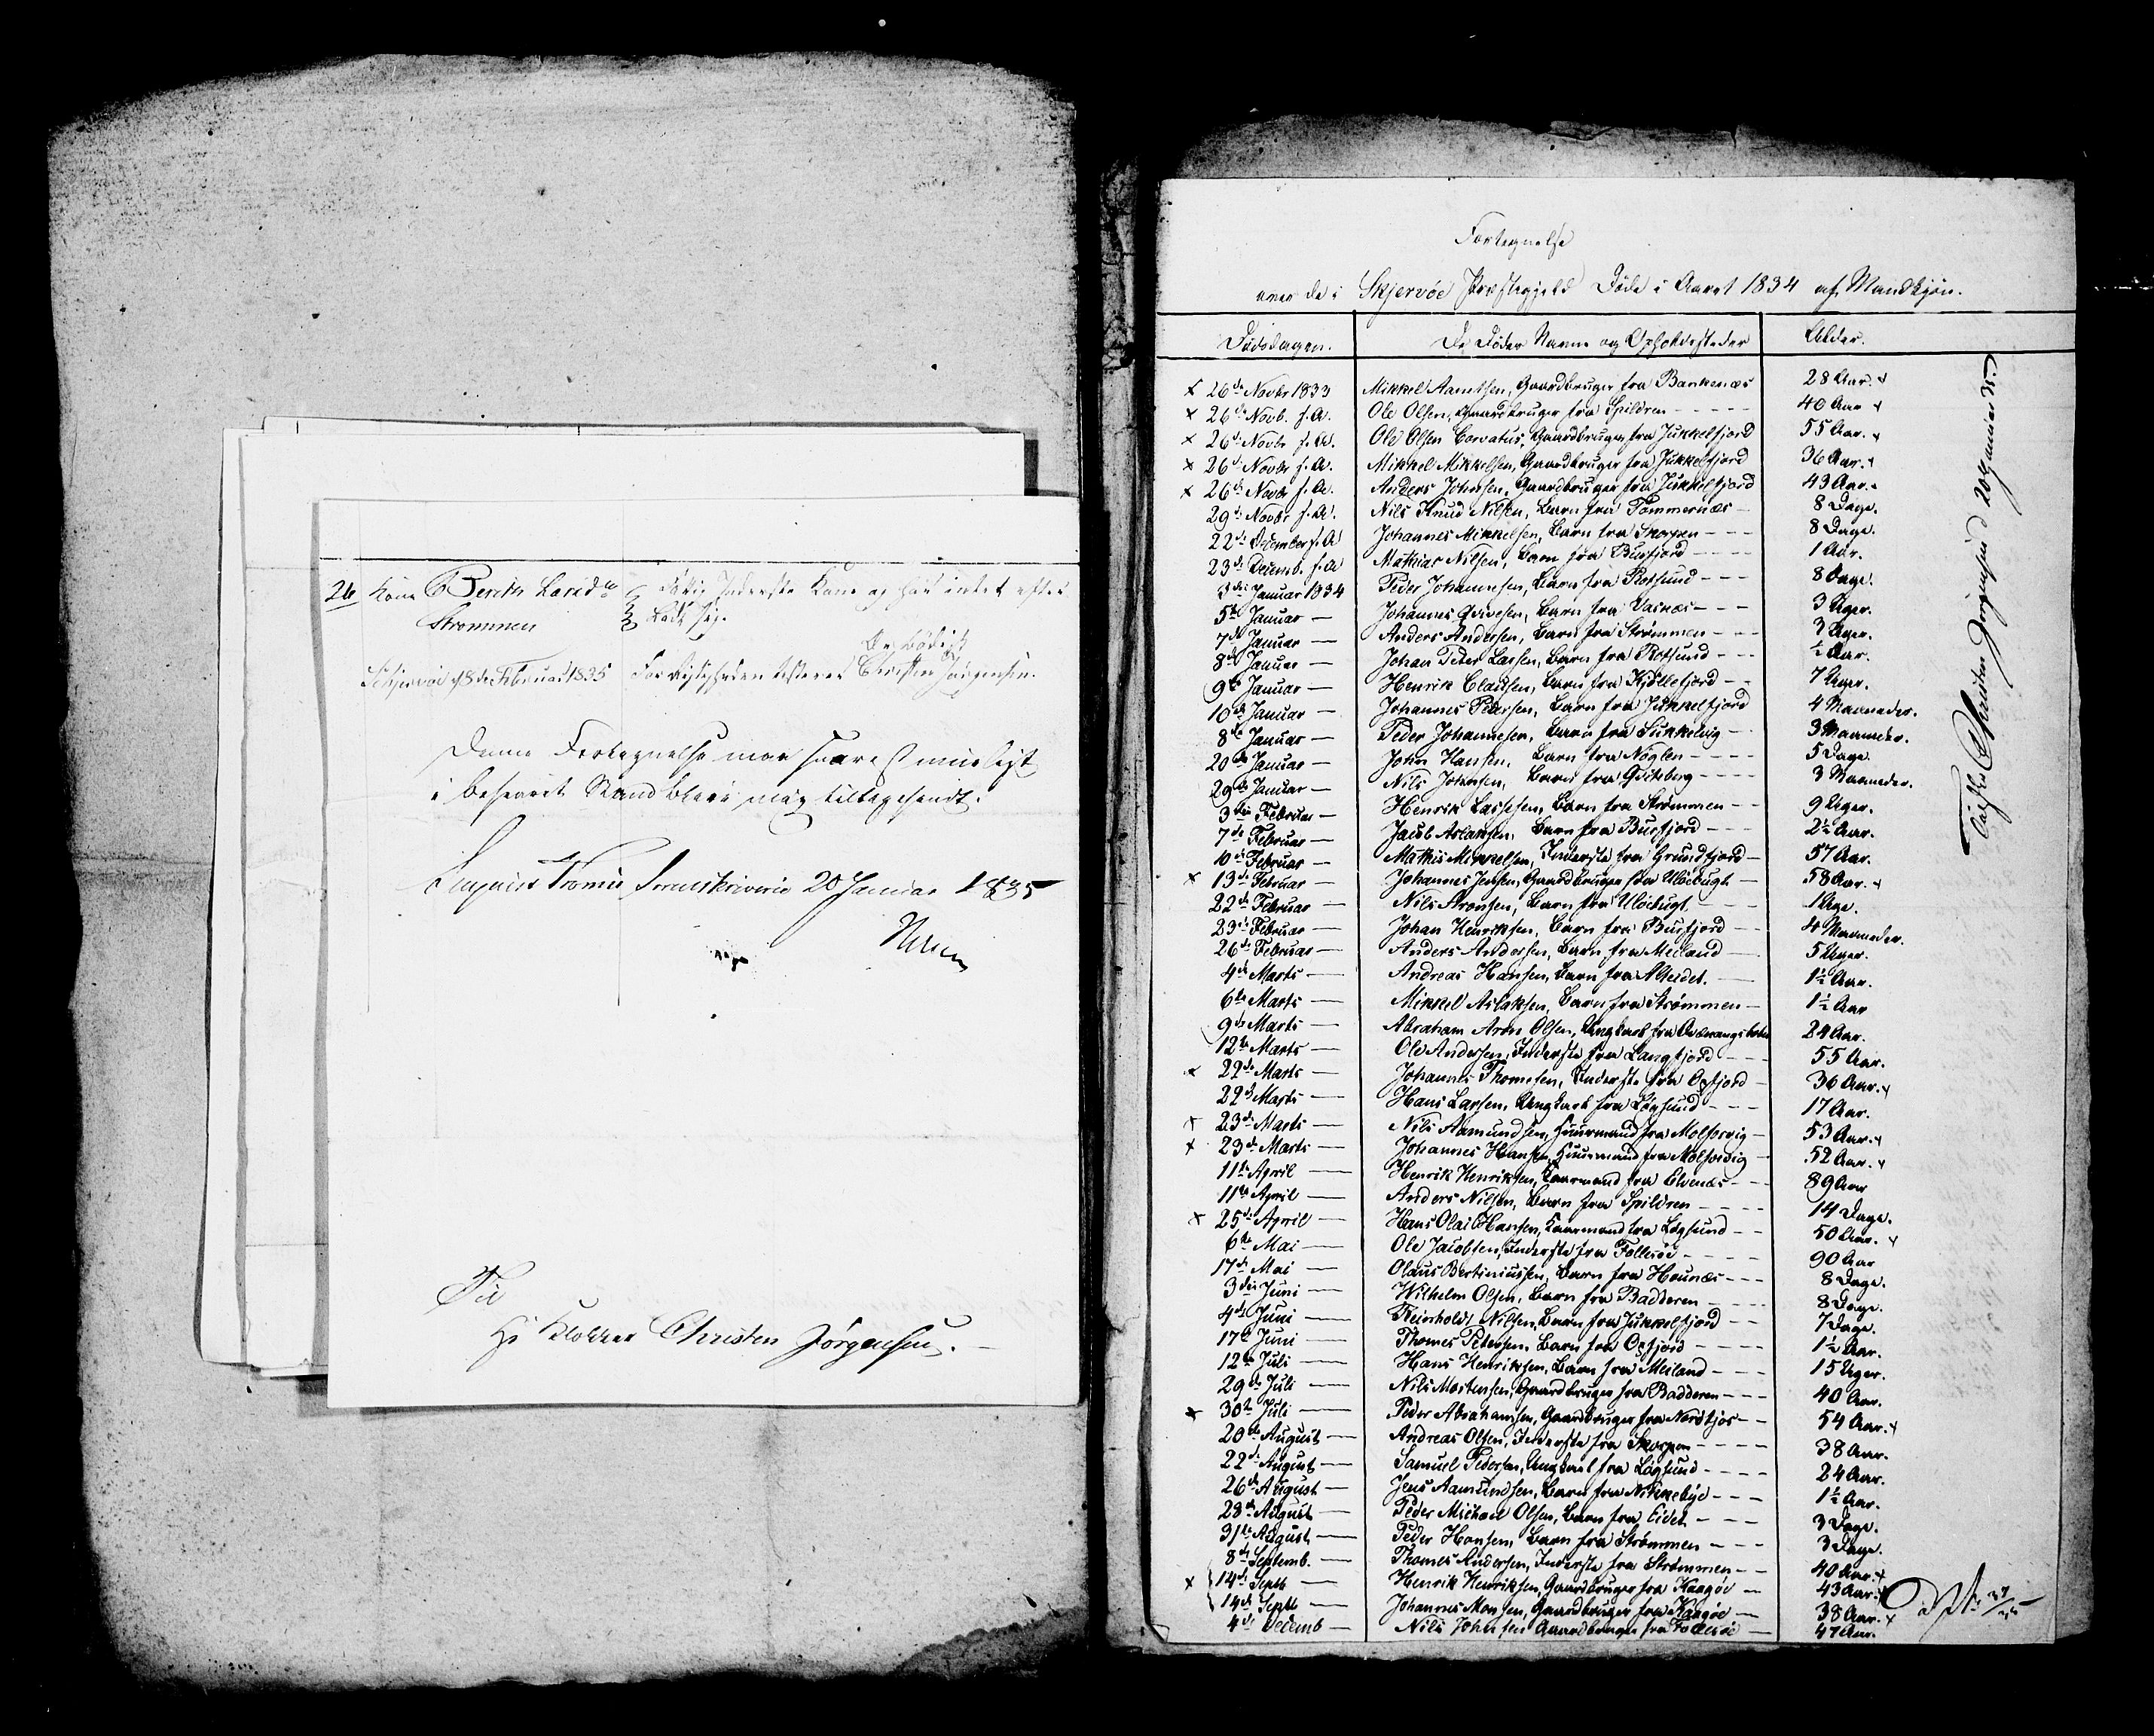 26 Kone Berith Larsd:
Fattig Inderste Kone og har intet efter
Strømmen
ladt sig.
Ærbødigst
Schjervøe d 18de Februar 1835 For Rigtigheden testerer Christen Jørgensen.
Denne Fortegnelse maa snarest mueligt
i besvaret Stand blive mig tilbagesendt.
Tromsø Sorenskriverie 20 Januar 1835
Til
Hr Klokker Christen Jørgensen.
Fortegnelse
over de i Skjervöe Præstegjeld Døde i Aaret 1834 af Mandkjøn.
Dødsdagen. De Dødes Navne og Opholdssteder Alder.
x 26de Novbr 1833 Mikkel Aamtsen, Gaardbruger fra Bankenæs 28 Aar.
x 26de Novb. s. A. Ole Olsen, Gaardbruger fra Spildren 40 Aar
x 26de Novbr s. A. Ole Olsen Corvatus, Gaardbruger fra Jukkelfjord 55 Aar.
x 26de Novbr s. A. Mikkel Mikkelsen, Gaardbruger fra Jukkelfjord 36 Aar.
x 26de Novbr s. A. Anders Johnsen, Gaardbruger fra Jukkelfjord 43 Aar.
29de Novbr s. A. Nils Knud Nilsen, Barn fra Tømmernæs 8 Dage.
22de December s. A Johannes Mikkelsen, Barn fra Skorpen 8 Dage.
23de Decemb. s. A Mathias Nilsen, Barn fra Burfjord 1 Aar.
3die Januar 1834 Peder Johannesen, Barn fra Rotsund 8 Dage.
5te Januar Johannes Qvivesen, Barn fra Vasnæs 3 Uger.
7de Januar Anders Andersen, Barn fra Strømmen 3 Uger.
8de Januar Johan Peter Larsen, Barn fra Rotsund ½ Aar.
9de Januar Henrik Clausen, Barn fra Kjøllefjord 7 Uger.
10de Januar Johannes Pedersen, Barn fra Jukkelfjord 4 Maaneder.
8de Januar Peder Johannesen, Barn fra Sukkelvig 3 Maaneder.
20de Januar John Hansen, Barn fra Nøglen 5 Dage.
29de Januar Nils Johnsen, Barn fra Qviteberg 3 Maaneder.
3die Februar Henrik Lassesen, Barn fra Strømmen 9 Uger.
7de Februar Jacob Aslaksen, Barn fra Burfjord 2½ Aar.
10de Februar Mathis Mikkelsen, Inderste fra Grundfjord 57 Aar.
x 13de Februar Johannes Jensen, Gaardbruger fra Uløebugt 58 Aar.
22de Februar Nils Aronsen, Barn fra Uløebugt 1 Uge.
23de Februar Johan Henriksen, Barn fra Burfjord 4 Maaneder.
26de Februar Anders Andersen, Barn fra Meiland 5 Uger.
4de Marts Andreas Hansen, Barn fra Alteidet. 1½ Aar.
6te Marts Mikkel Aslaksen, Barn fra Strømmen 1½ Aar
9de Marts Abraham Aron Olsen, Ungkarl fra Qvænangsbotn 24 Aar.
12te Marts Ole Andersen, Inderste fra Langfjord 55 Aar.
x 22de Marts Johannes Thomesen, Inderste fra Oxfjord 36 Aar.
22de Marts Hans Larsen, Ungkarl fra Løgsund 17 Aar.
x 23de Marts Nils Aamundsen, Huusmand fra Molsorvig 53 Aar.
x 23de Marts Johannes Hansen, Huusmand fra Molsorvig 52 Aar.
11te April Henrik Henriksen, Kaarmand fra Elvenæs 89 Aar
11te April Anders Nilsen, Barn fra Spildren 14 Dage.
x 25de April Hans Olai Hansen, Kaarmand fra Løgsund 50 Aar.
6te Mai Ole Jacobsen, Inderste fra Follesøe 90 Aar
17de Mai Olaus Bertiniussen, Barn fra Haunæs 8 Dage.
3die Juni Wilhelm Olsen, Barn fra Badderen 8 Dage.
4de Juni Reinholdt Nilsen, Barn fra Jukkelfjord 7 Dage.
17de Juni Thomes Petersen, Barn fra Oxfjord 1½ Aar.
12te Juli Hans Henriksen, Barn fra Meiland 15 Uger.
29de Juli Nils Mortensen, Gaardbruger fra Badderen 40 Aar.
x 30te Juli Peder Abrahamsen, Gaardbruger fra Nordkjos 54 Aar.
20de August Andreas Olsen, Inderste fra Skorpen 38 Aar.
22de August Samuel Pedersen, Ungkarl fra Løgsund 24 Aar.
26de August Jens Aamundsen, Barn fra Nikkebye 1½ Aar.
28de August Peder Michael Olsen, Barn fra Eidet 3 Dage.
31te August Peder Hansen, Barn fra Strømmen 3 Dage.
8de Septemb. Thomes Andersen, Inderste fra Strømmen 40 Aar.
x 14de Septb Henrik Henriksen, Gaardbruger fra Kaagøe 43 Aar.
14de Septb Johannes Monsen, Gaardbruger fra Kaagøe 38 Aar. x
4de Decemb Nils Johnsen Gaardbruger fra Follesøe 47 Aar.
Christen Jørgensen d 20 Januar 35